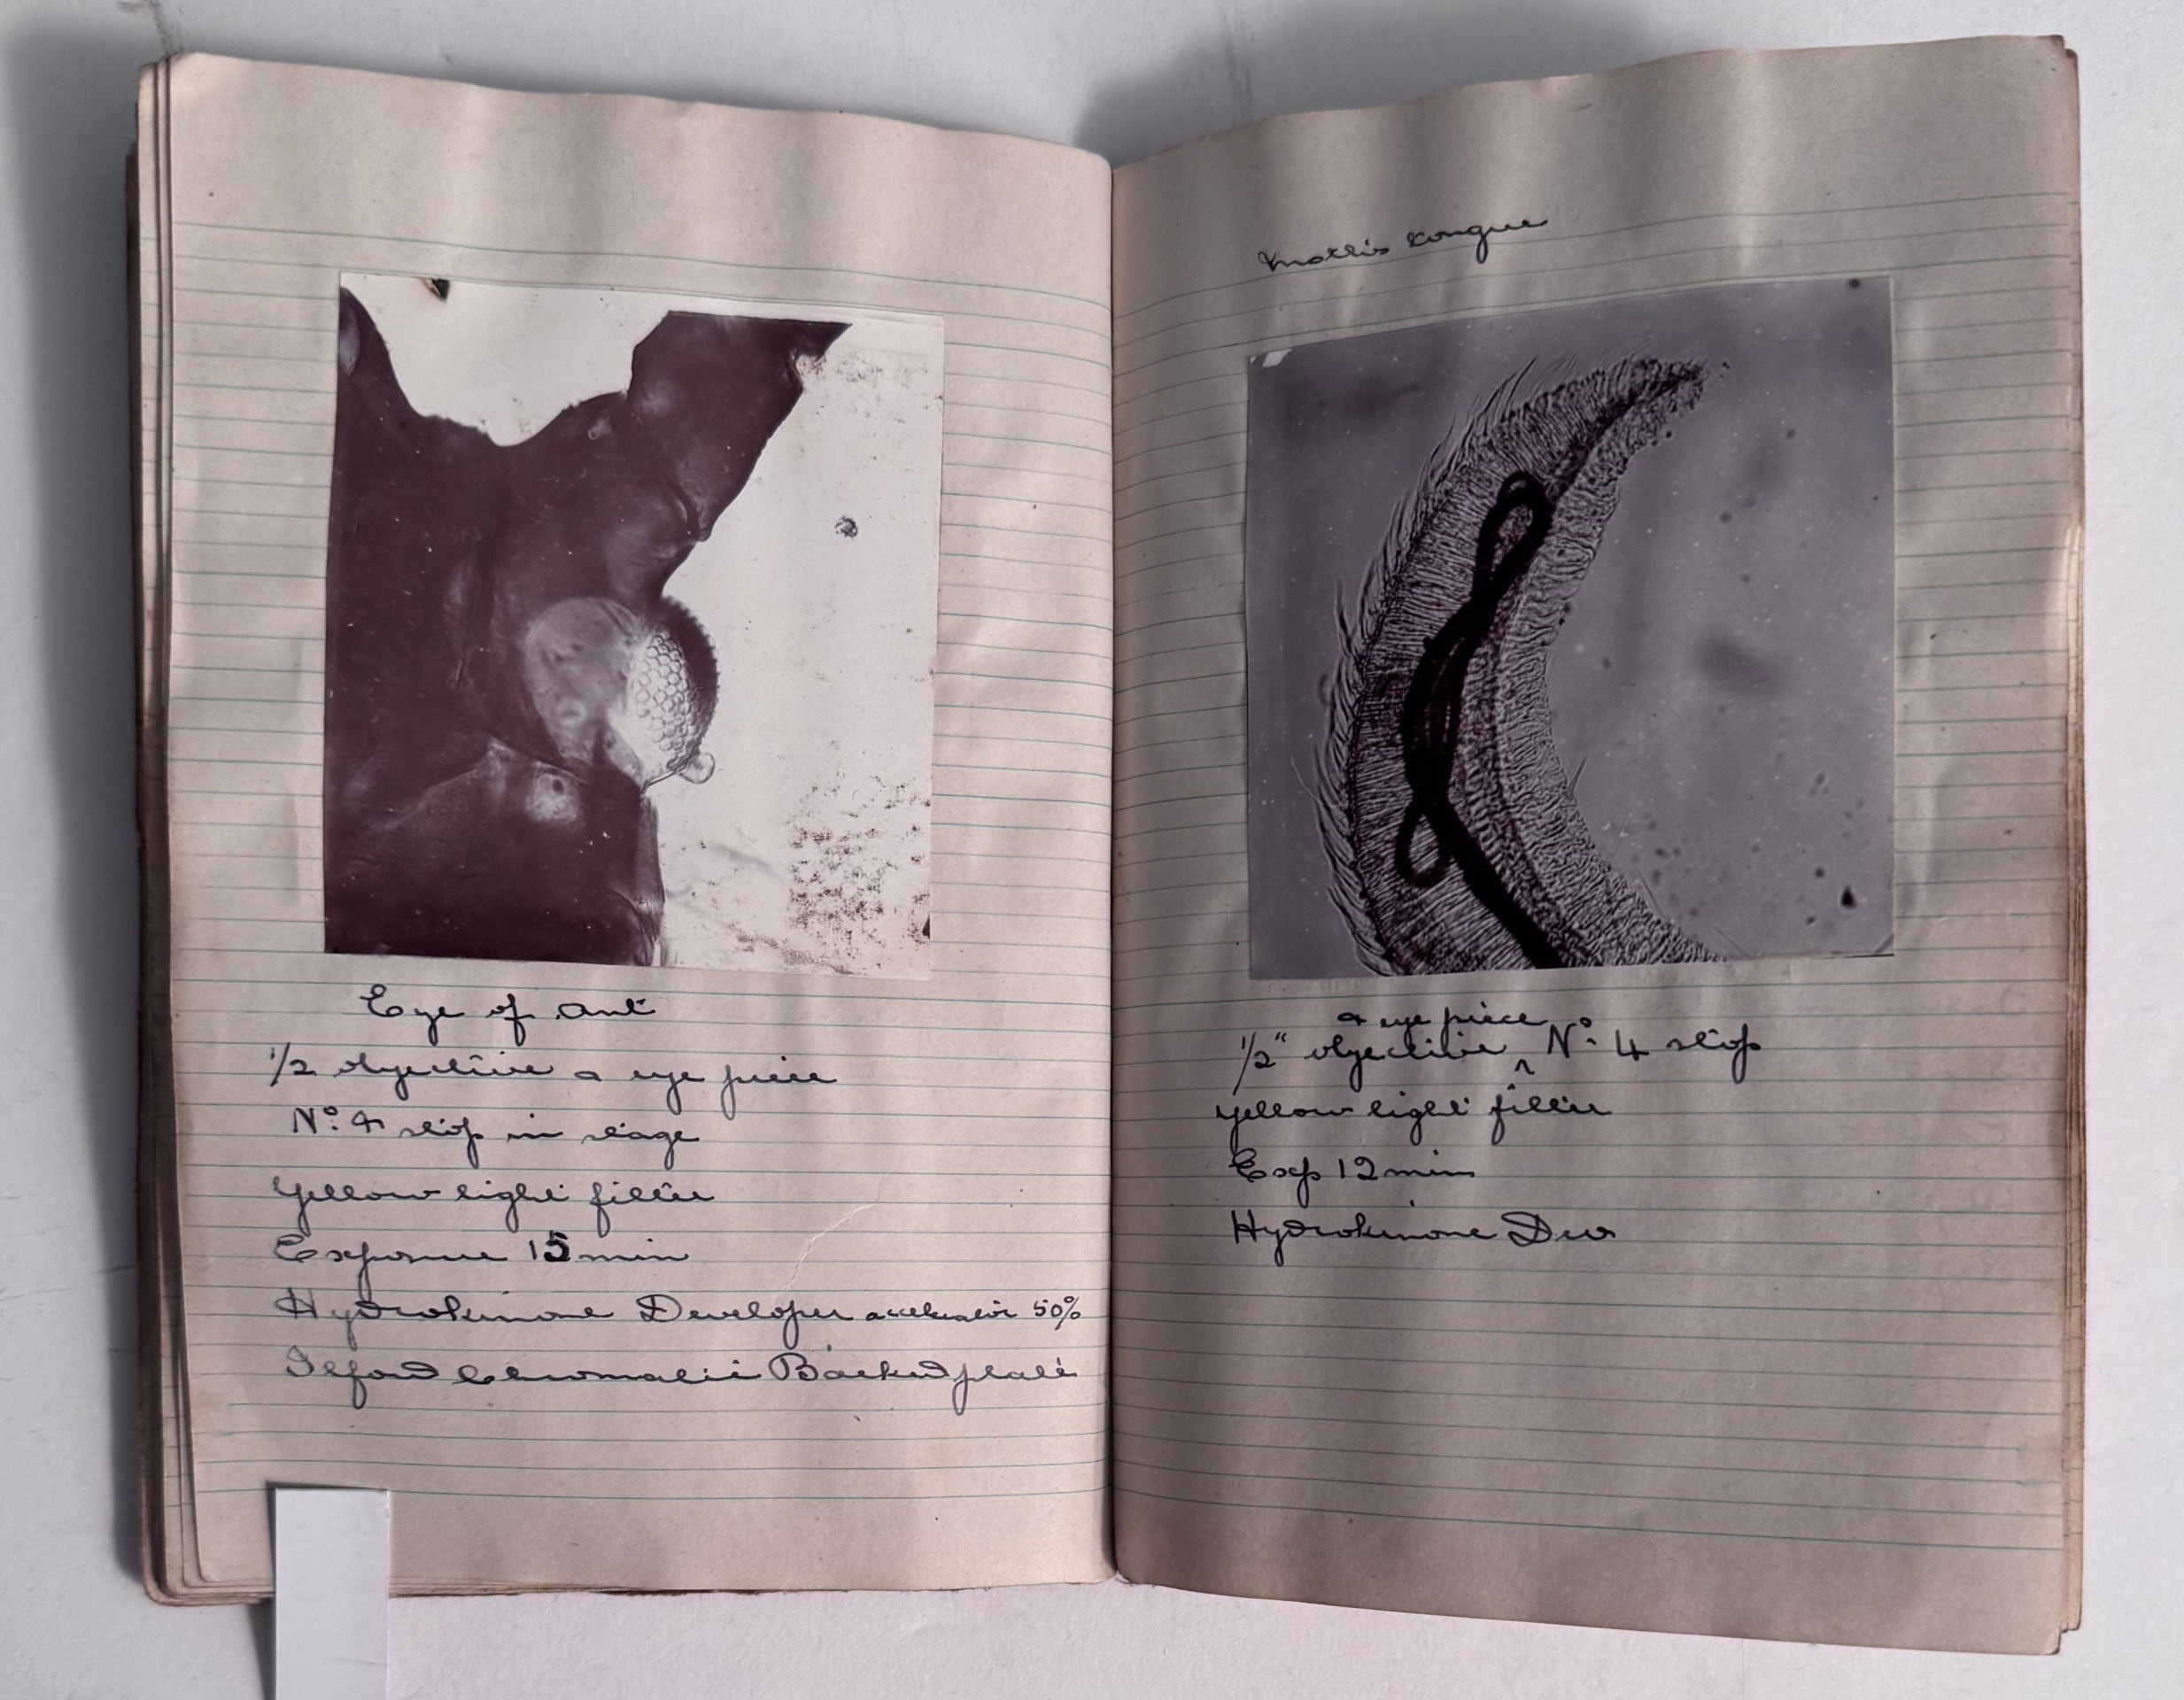 Eye of ant
1/2 objective a eye piece
Nº 4 stop in stage
Yellow light filter
Exposure 15 min
Hydrokinone Developer accelerator 50%
Ilford Chromatic Backed plate
moths tongue
a eye piece
1/2" objective ^ Nº 4 stop
yellow light filter
Exp 12 min
Hydrokinone Dev